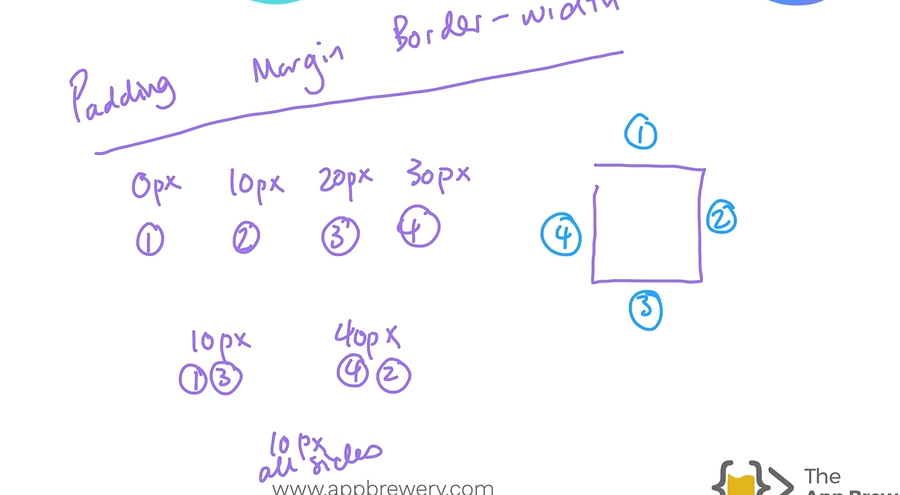 Padding Margin Border-width
0px 10px 20px 30px
1 2 3 4
1
4 2
3
10px 40px
1 3 4 2
10px
all sides
www.appbrewery.com
The
App Brew